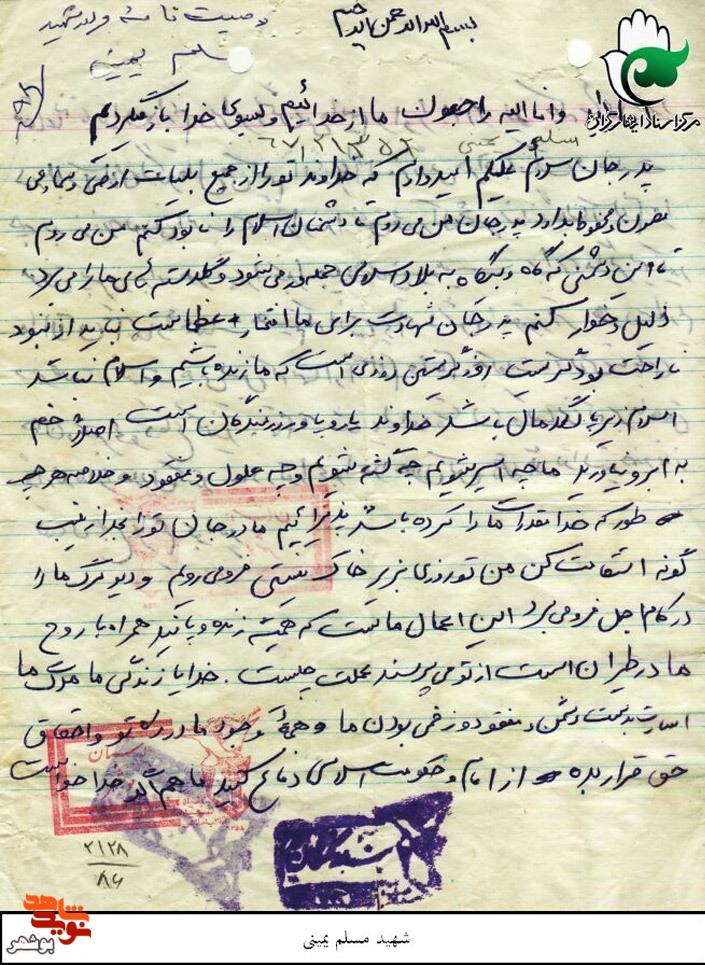 بسم الله الرحمن الرحیم
وصیت نامه برادر شهید
مسلم یمینی
مرکز اسناد ایثارگران
وانا الیه راجعون ما از خدائیم و بسوی خدا باز میگردیم
مسلم یمینی
پدر جان سلام علیکم امیدوارم که خداوند تو را از جمیع بلیات ارضی و سماوی
مصون و محفوظ بدارد پدر جان من می روم تا دشمنان اسلام را نابود کنم من می روم
تا این دشمنی که گاه و بیگاه به بلاد اسلامی حمله ور می شود و گلدسته های ما را می برد
ذلیل و خوار کنم پدر جان شهادت برای ما افتخار + عظمت نباید از نبود
ناراحت بود گریست روز گریستن روزی است که ما زنده باشیم و اسلام نباشد
اسلام زیر پا لگدمال باشد خداوند یار و یاور رزمندگان است اصلا خم
به ابرو نیاورید ما چه اسیر شویم چه کشته شویم و چه معلول و مفقود و خلاصه هر چه
طور که خدا مقدرات ما را کرده باشد پذیرائیم مادر جان تو را بخدا زینب
گونه استقامت کن من تو روزی بزیر خاک نیستی فرو می رویم و دیو مرگ ما را
در کام اجل فرو می برد این اعمال ماست که همیشه زنده و پایند همراه با روح
ما در طیران است از تو می پرسند عملت چیست . خدایا زندگی ما مرگ ما
اسارت بدست دشمن و مفقود و زخمی بودن ما و همه وجود ما در راه تو و احقاق
حق قرار بده از امام و حکومت اسلامی دفاع کنید ما هم اگر خدا خواست
۲۱۲۸
۸۶
شاهد
نوید
بوشهر
شهید مسلم یمینی